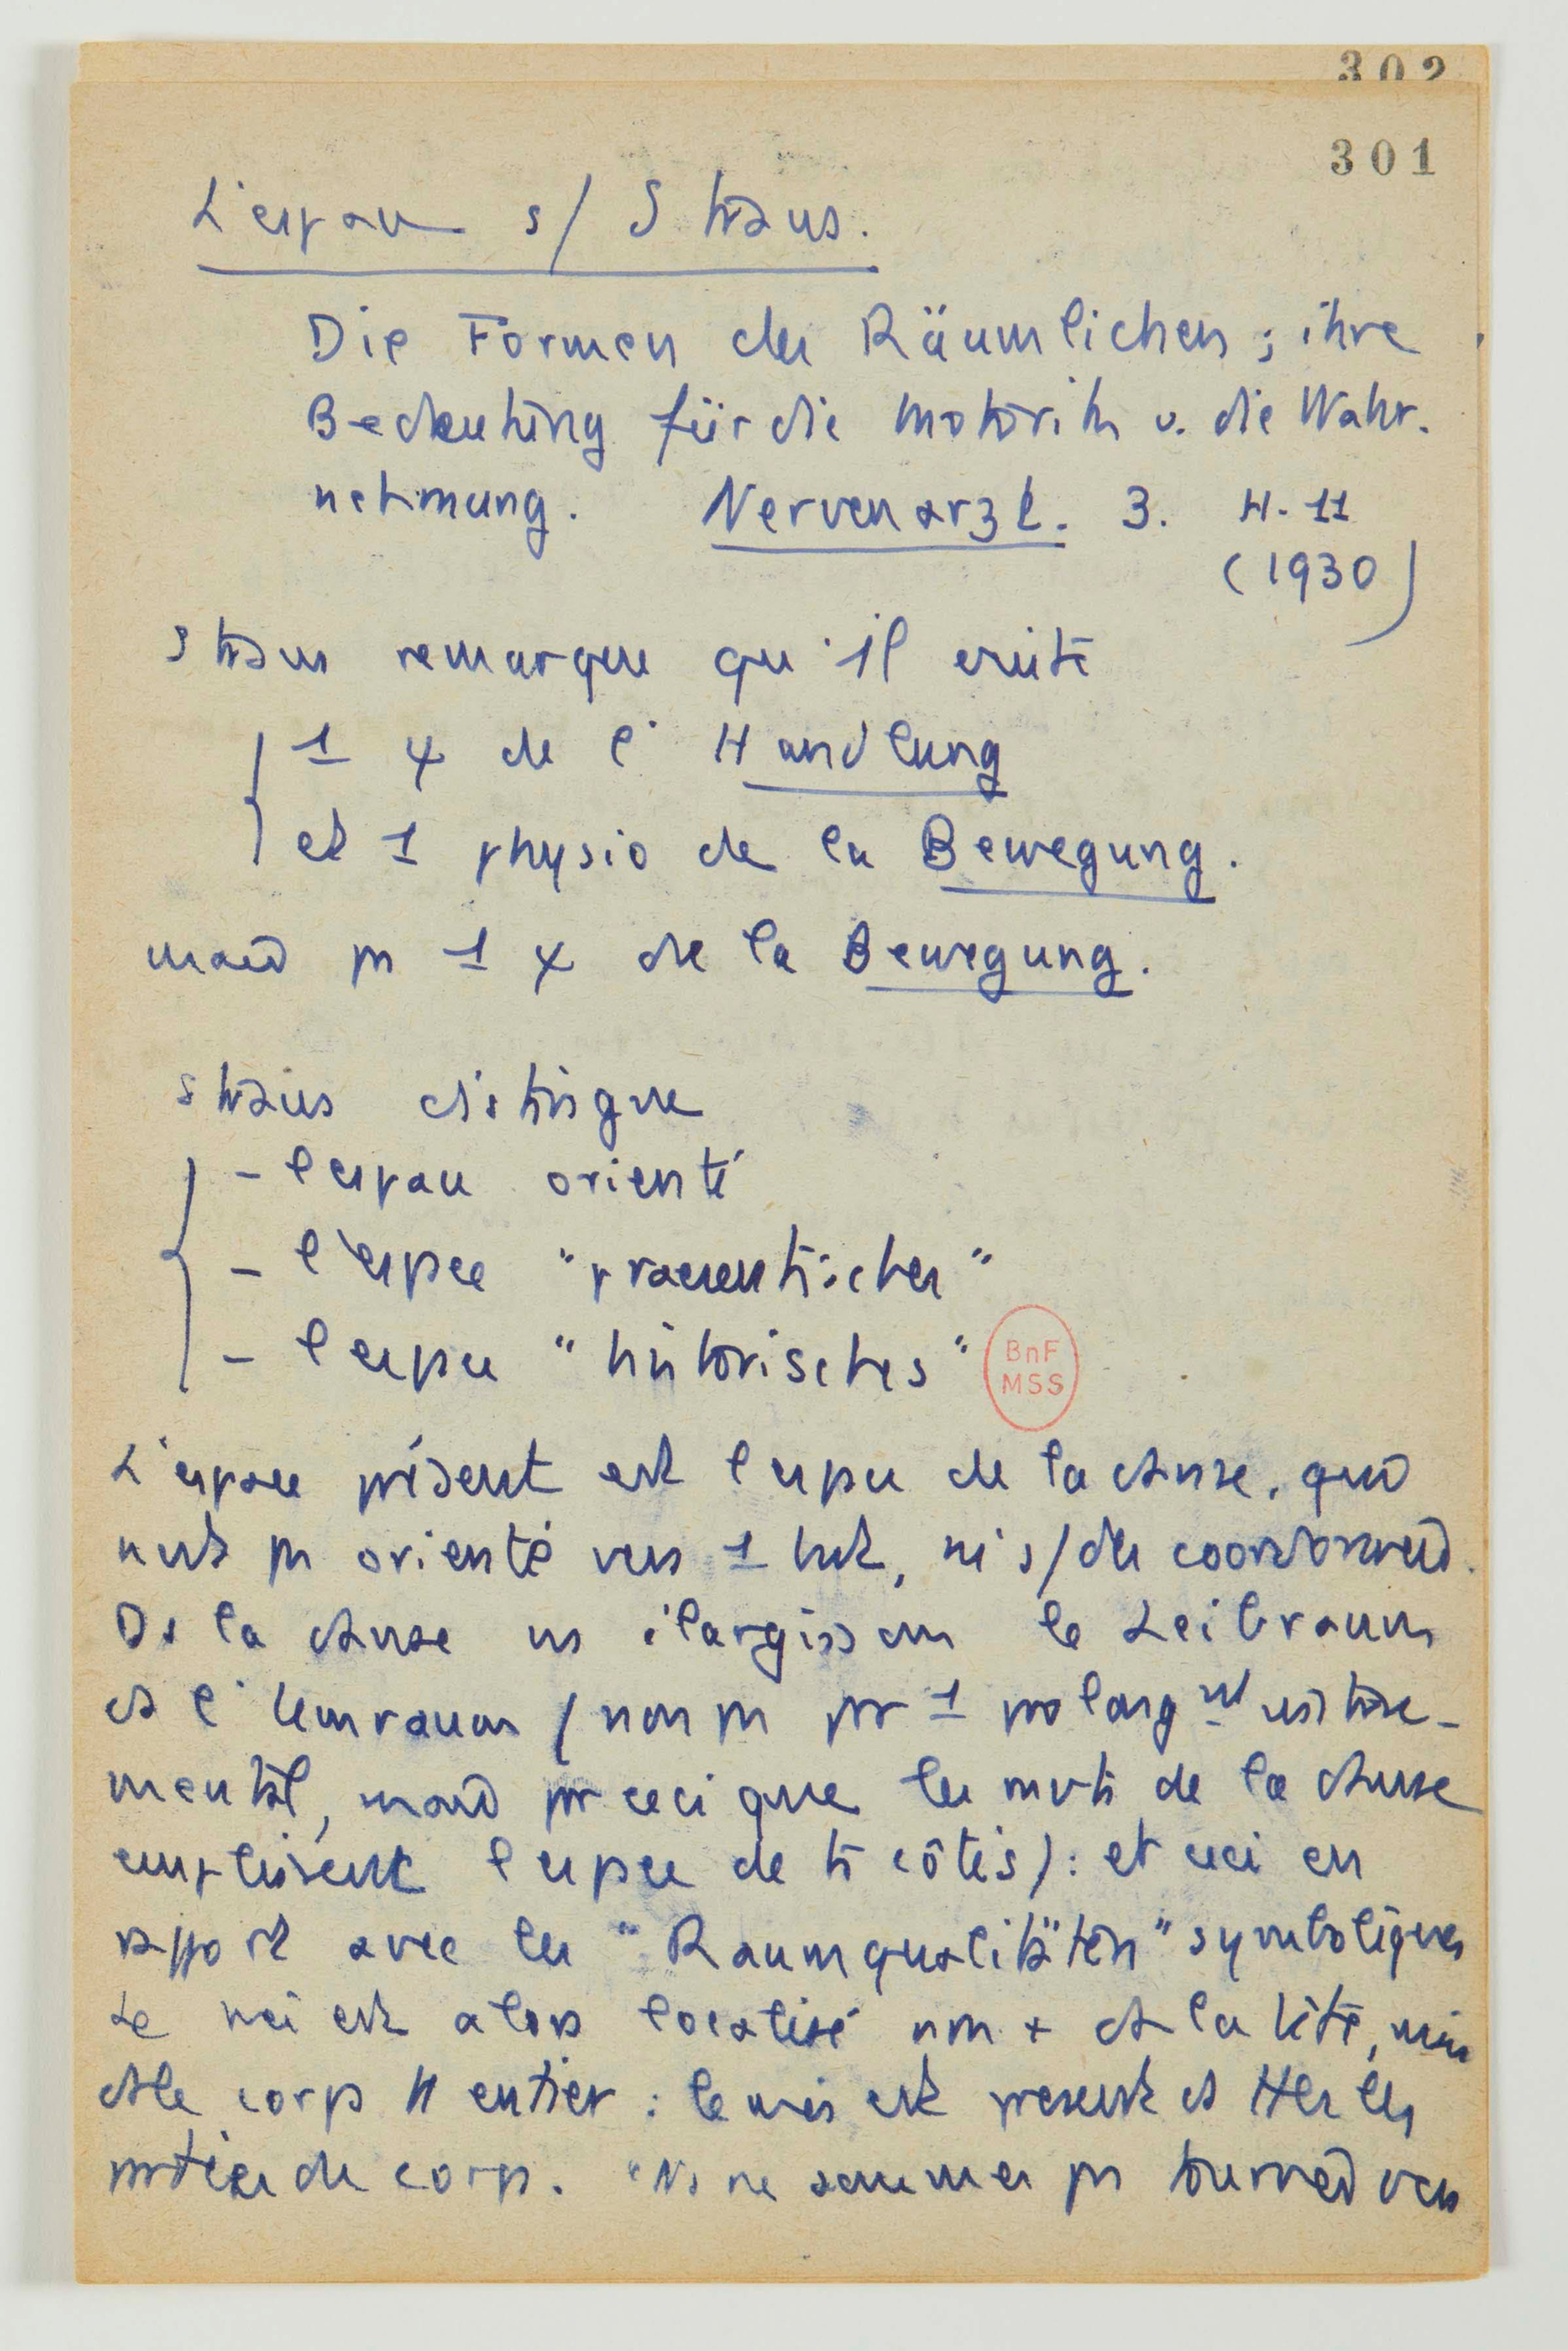 302
301
L'espace s/ Straus.
Die Formen des Räumlichen ; ihre
Bedeutung für die Motorik u. die Wahr-
nehmung. Nervenarzt. 3. H. 11
(1930)
Straus remarque qu'il existe
1 ψ de l' Handlung
et 1 physio de la Bewegung.
mais pas 1 ψ de la Bewegung.
Straus distingue
- l'espace orienté
- l'espace "praesentischer"
- l'espace "historisches"
BnF
MSS
L'espace présent est l'espace de la danse, qui
n'est pas orienté vers 1 but, ni s/ des coordonnées.
Ds la danse ns élargissons le Leibraum
ds l' Umraum (non pas par 1 prolongnt
mental, mais par ceci que les mvts de la danse
emplissent l'espace de ts côtés) : et ceci en
rapport avec les "Raumqualitäten" symboliques
Le moi est alors localisé non + ds la tête, mais
ds le corps tt entier : le moi est présent ds ttes les
parties du corps. "Ns ne sommes pas tournés vers